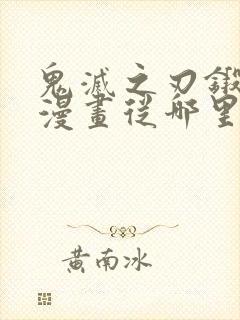 鬼滅之刃鍛
漫畫從哪里
黃南冰